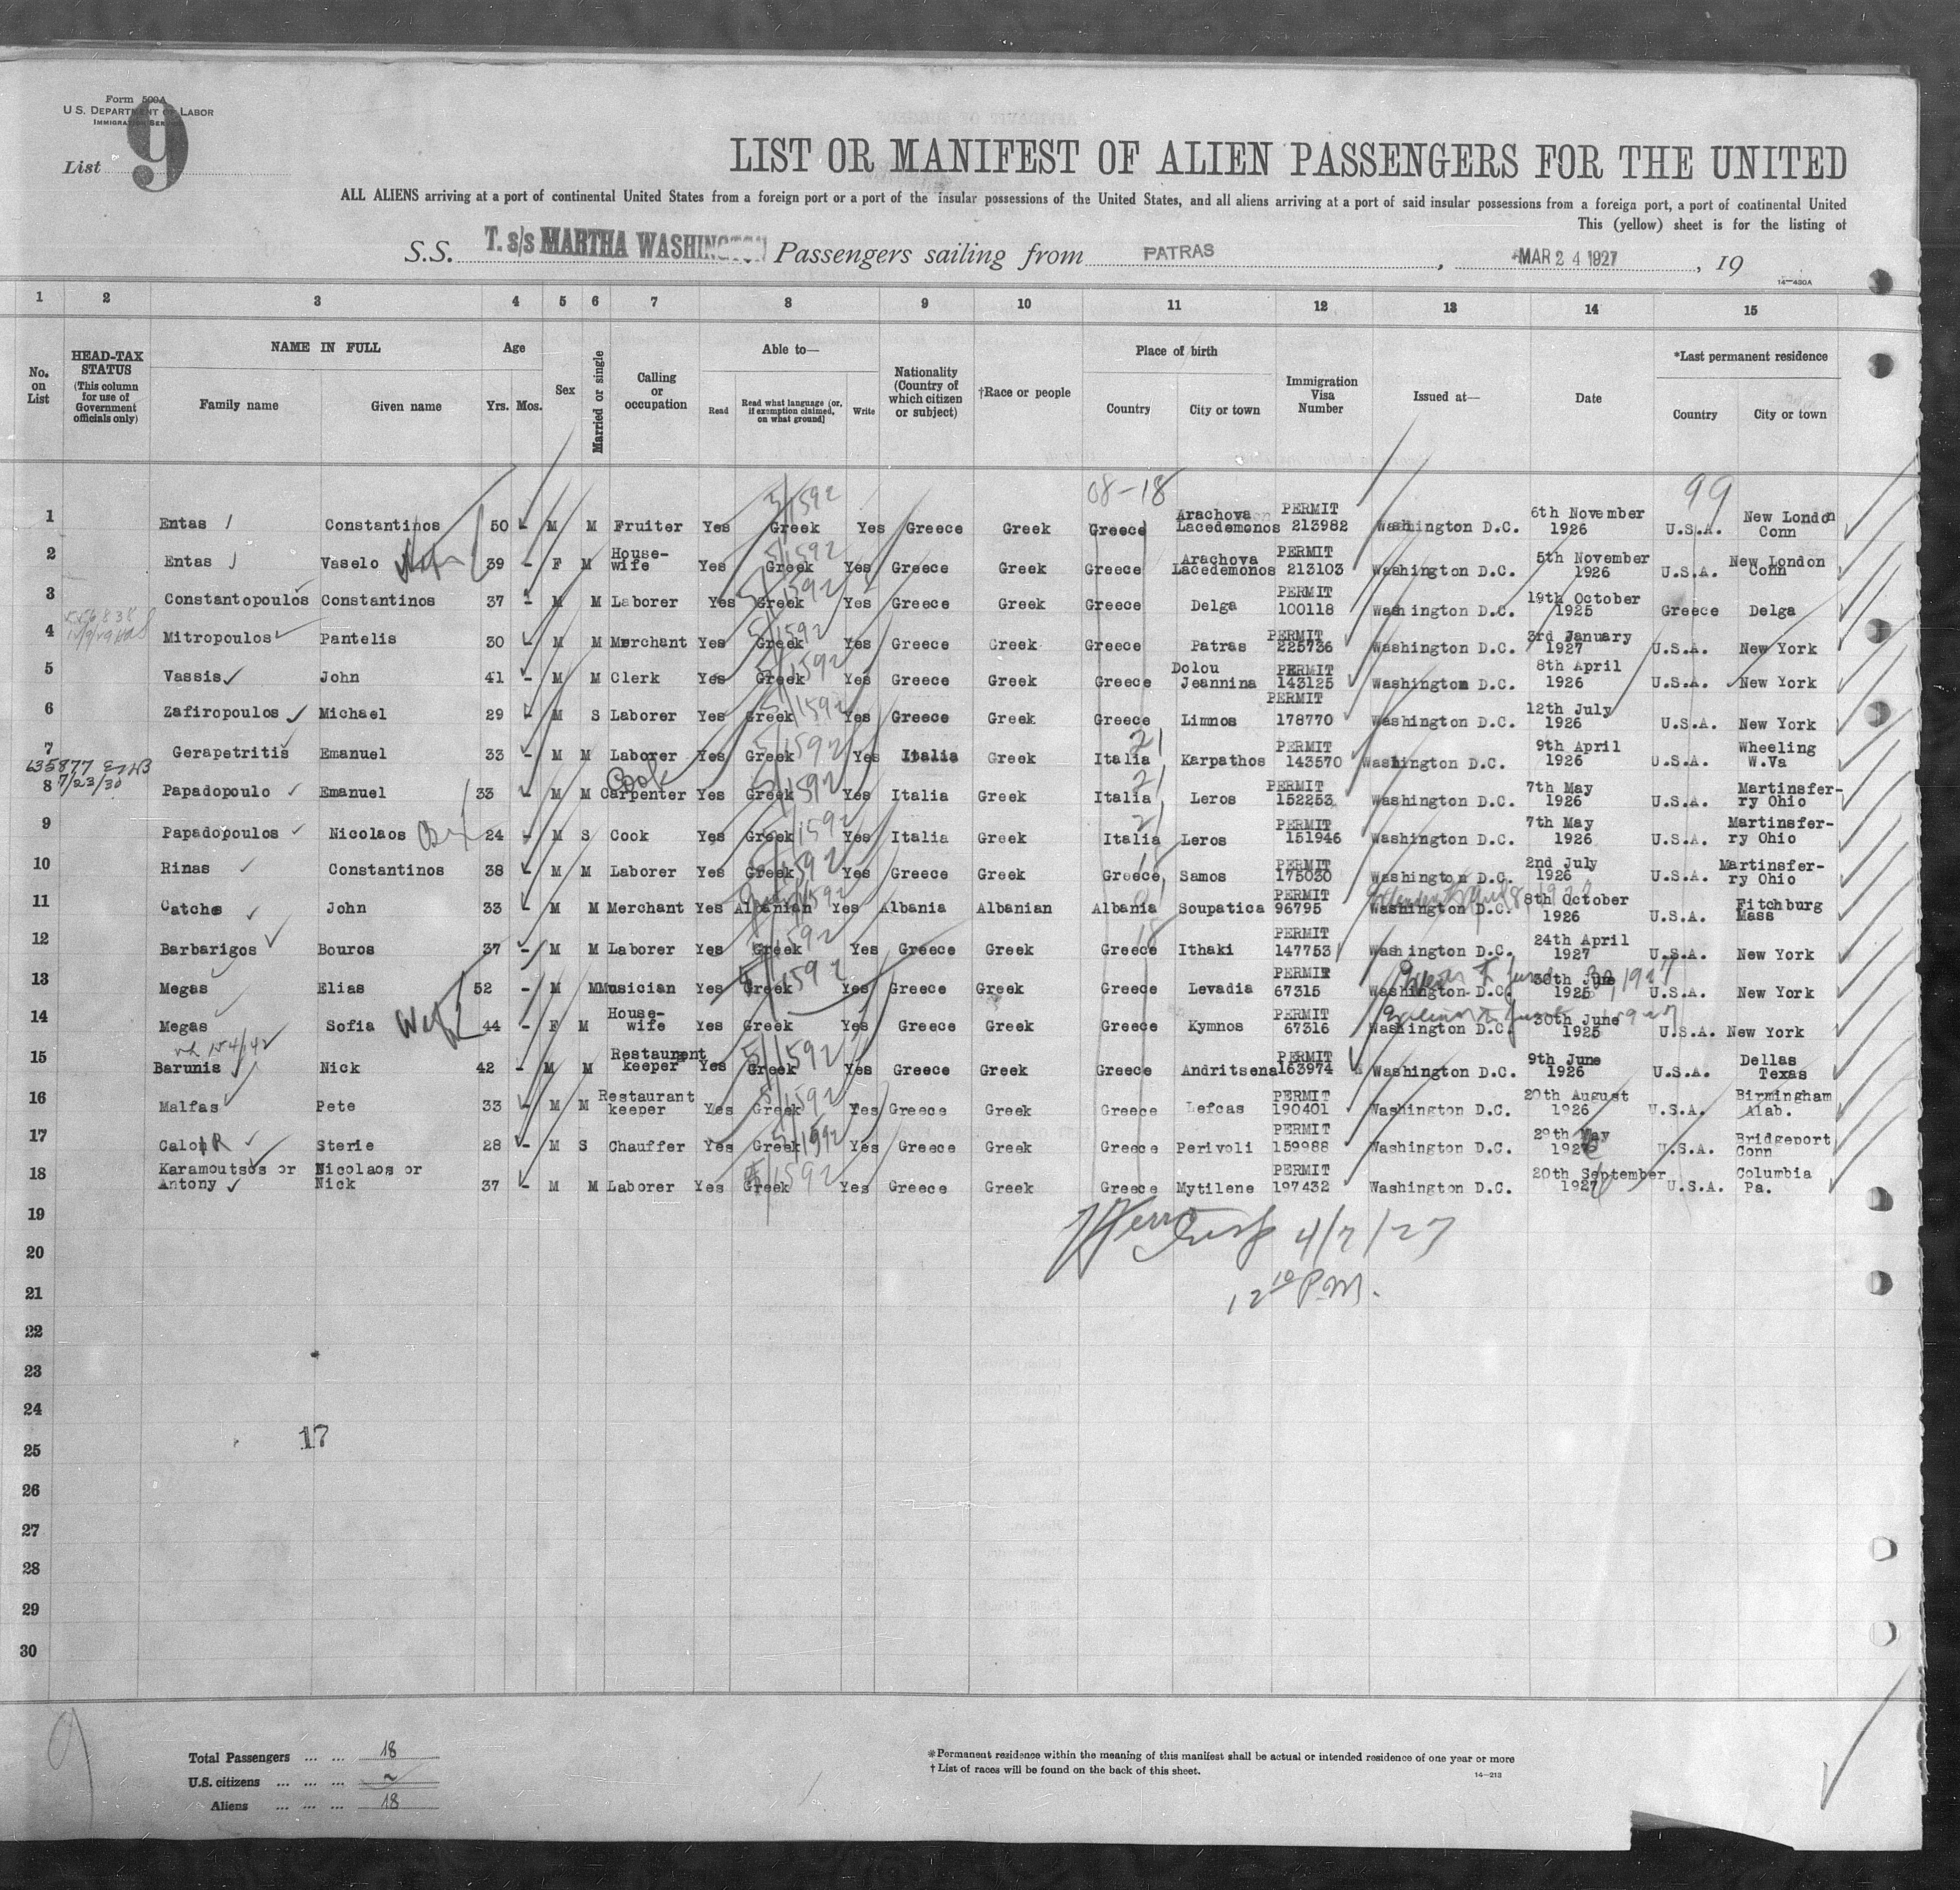 Form 500A
U.S. DEPARTMENT OF LABOR
IMMIGRATION SERVICE
List 9
LIST OR MANIFEST OF ALIEN PASSENGERS FOR THE UNITED
ALL ALIENS arriving at a port of continental United States from a foreign port or a port of the insular possessions of the United States, and all aliens arriving at a port of said insular possessions from a foreign port, a port of continental United
This (yellow) sheet is for the listing of
S.S. T. s/s MARTHA WASHINGTON Passengers sailing from PATRAS, MAR 24 1927, 19
14—430A
1 2 3 4 5 6 7 8 9 10 11 12 13 14 15
No. on List
HEAD-TAX STATUS (This column for use of Government officials only)
NAME IN FULL
Family name Given name
Age
Yrs. Mos.
Sex
Married or single
Calling or occupation
Able to—
Read Read what language (or, if exemption claimed, on what ground) Write
Nationality (Country of which citizen or subject)
†Race or people
Place of birth
Country City or town
Immigration Visa Number
Issued at—
Date
*Last permanent residence
Country City or town
08-18 99
1 Entas Constantinos 50 - M M Fruiter Yes Greek Yes Greece Greek Greece Arachova Lacedemonos PERMIT 213982 Washington D.C. 6th November 1926 U.S.A. New London Conn
5/1592
2 Entas Vaselo 39 - F M House-wife Yes Greek Yes Greece Greek Greece Arachova Lacedemonos PERMIT 213103 Washington D.C. 5th November 1926 U.S.A. New London Conn
5/1592
3 Constantopoulos Constantinos 37 - M M Laborer Yes Greek Yes Greece Greek Greece Delga PERMIT 100118 Washington D.C. 19th October 1925 Greece Delga
5/1592
4 Mitropoulos Pantelis 30 - M M Merchant Yes Greek Yes Greece Greek Greece Patras PERMIT 225736 Washington D.C. 3rd January 1927 U.S.A. New York
5/1592
5 Vassis John 41 - M M Clerk Yes Greek Yes Greece Greek Greece Dolou Jeannina PERMIT 143125 Washington D.C. 8th April 1926 U.S.A. New York
5/1592
6 Zafiropoulos Michael 29 - M S Laborer Yes Greek Yes Greece Greek Greece Limnos PERMIT 178770 Washington D.C. 12th July 1926 U.S.A. New York
5/1592
7 Gerapetritis Emanuel 33 - M M Laborer Yes Greek Yes Italia Greek Italia Karpathos PERMIT 143570 Washington D.C. 9th April 1926 U.S.A. Wheeling W.Va
5/1592 21
635877
7/23/30
8 Papadopoulo Emanuel 33 - M M Carpenter Cook Yes Greek Yes Italia Greek Italia Leros PERMIT 152253 Washington D.C. 7th May 1926 U.S.A. Martinsfer-ry Ohio
5/1592 21
9 Papadopoulos Nicolaos 24 - M S Cook Yes Greek Yes Italia Greek Italia Leros PERMIT 151946 Washington D.C. 7th May 1926 U.S.A. Martinsfer-ry Ohio
5/1592 21
10 Rinas Constantinos 38 - M M Laborer Yes Greek Yes Greece Greek Greece Samos PERMIT 175030 Washington D.C. 2nd July 1926 U.S.A. Martinsfer-ry Ohio
1592 18
11 Catche John 33 - M M Merchant Yes Albanian Yes Albania Albanian Albania Soupatica PERMIT 96795 Washington D.C. 8th October 1926 U.S.A. Fitchburg Mass
1592
12 Barbarigos Bouros 37 - M M Laborer Yes Greek Yes Greece Greek Greece Ithaki PERMIT 147753 Washington D.C. 24th April 1927 U.S.A. New York
1592 18
13 Megas Elias 52 - M M Musician Yes Greek Yes Greece Greek Greece Levadia PERMIT 67315 Washington D.C. 30th June 1925 U.S.A. New York
1592
14 Megas Sofia Wife 44 - F M House-wife Yes Greek Yes Greece Greek Greece Kymnos PERMIT 67316 Washington D.C. 30th June 1925 U.S.A. New York
15 Barunis Nick 42 - M M Restaurent keeper Yes Greek Yes Greece Greek Greece Andritsena PERMIT 163974 Washington D.C. 9th June 1926 U.S.A. Dellas Texas
5/1592
16 Malfas Pete 33 - M M Restaurant keeper Yes Greek Yes Greece Greek Greece Lefcas PERMIT 190401 Washington D.C. 20th August 1926 U.S.A. Birmingham Alab.
5/1592
17 Calo R Sterie 28 - M S Chauffer Yes Greek Yes Greece Greek Greece Perivoli PERMIT 159988 Washington D.C. 29th May 1926 U.S.A. Bridgeport Conn
5/1592
18 Karamoutsos or Antony Nicolaos or Nick 37 - M M Laborer Yes Greek Yes Greece Greek Greece Mytilene PERMIT 197432 Washington D.C. 20th September 1926 U.S.A. Columbia Pa.
5/1592
19
4/7/27
20
21
12 10 P.M.
22
23
24
17
25
26
27
28
29
30
9
Total Passengers ... ... 18
U.S. citizens ... ... ... ~
Aliens ... ... ... 18
*Permanent residence within the meaning of this manifest shall be actual or intended residence of one year or more
†List of races will be found on the back of this sheet.
14—213